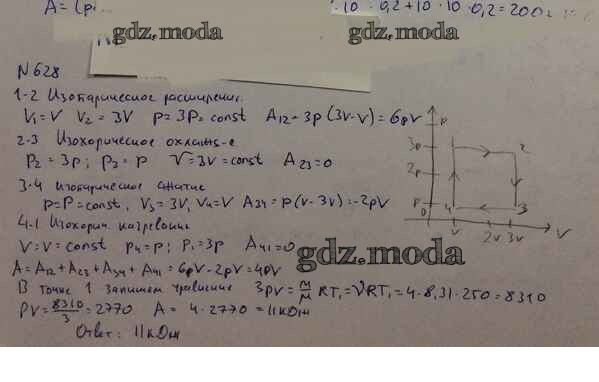 A = (p 10 · 0,2 + 10 · 10 · 0,2 = 200
gdz.moda
gdz.moda
N 628
1-2 Изобарическое расширение.
V₁ = V V₂ = 3V P = 3P = const A₁₂ = 3p (3V - V) = 6pV
2-3 Изохорическое охлажд-е
P₂ = 3p; P₃ = P V = 3V = const A₂₃ = 0
3-4 изобарическое сжатие
p = P = const, V₃ = 3V, V₄ = V A₃₄ = P (V - 3V) = -2pV
4-1 Изохорич. нагревание
V = V = const P₄ = p; P₁ = 3p A₄₁ = 0
gdz.moda
A = A₁₂ + A₂₃ + A₃₄ + A₄₁ = 6pV - 2pV = 4pV
В точке 1 запишем уравнение 3pV = m/M RT₁ = νRT₁ = 4 · 8,31 · 250 = 8310
PV = 8310/3 = 2770 A = 4 · 2770 = 11 кДж
Ответ: 11 кДж
P
3p
2p
P
0
2
4
3
V
2V
3V
V